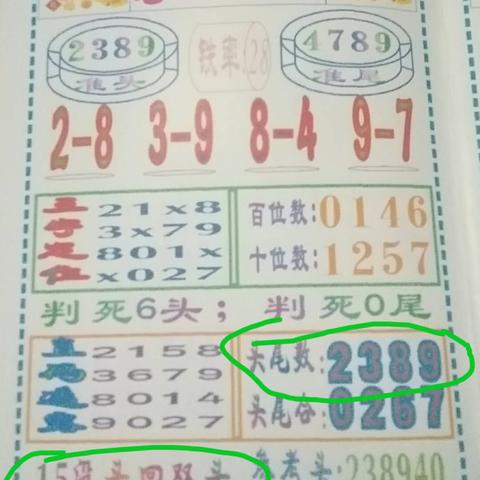 2389 铁率:28 4789
准头 准尾
2-8 3-9 8-4 9-7
三字定位
21x8
3x79
801x
x027
百位数:0146
十位数:1257
判死6头; 判死0尾
2158
3679
8014
9027
头尾数:2389
头尾合:0267
15 头回双头 参考头:238940